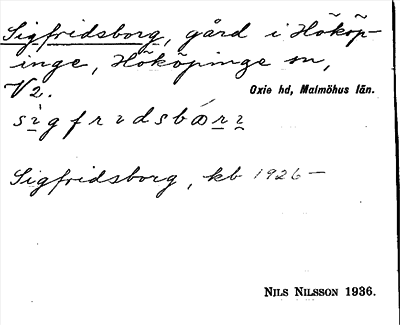 Sigfridsborg, gård i Hököp-
inge, Hököpinge sn,
V2. Oxie hd, Malmöhus län.
Sigfridsborg, kb 1926–
Nils Nilsson 1936.